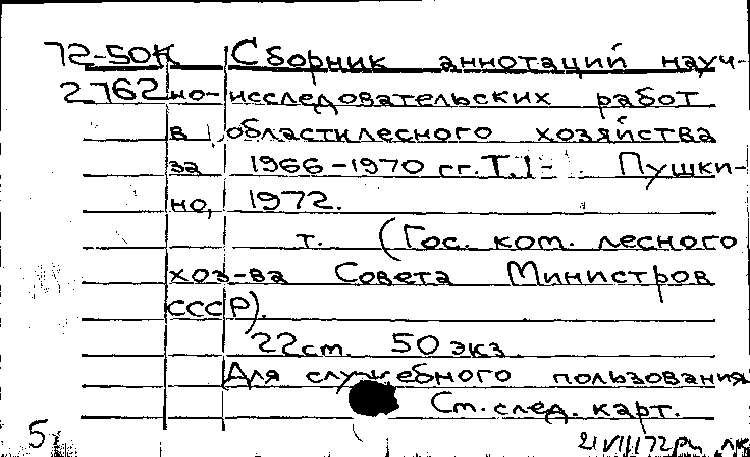 72-50к Сборник аннотаций науч-
2762 но-исследовательских работ
в области лесного хозяйства
за 1966-1970 гг. Т.1- Пушки-
но, 1972.
т. (Гос. ком. лесного
хоз-ва Совета Министров
СССР).
22 см. 50 экз.
Для служебного пользования
См. след. карт.
5
21/VIII72